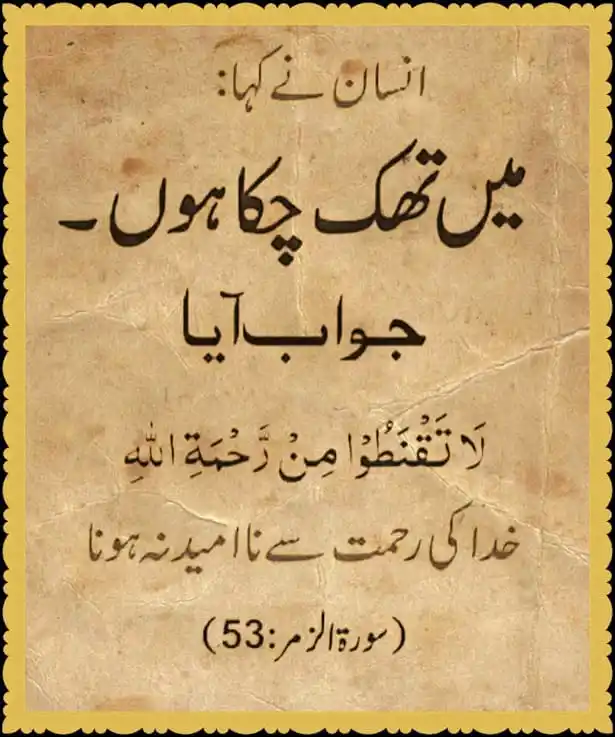 انسان نے کہا:
میں تھک چکا ہوں۔
جواب آیا
لَا تَقْنَطُوْا مِنْ رَّحْمَةِ اللهِ
خدا کی رحمت سے نا امید نہ ہونا
(سورۃ الزمر:53)